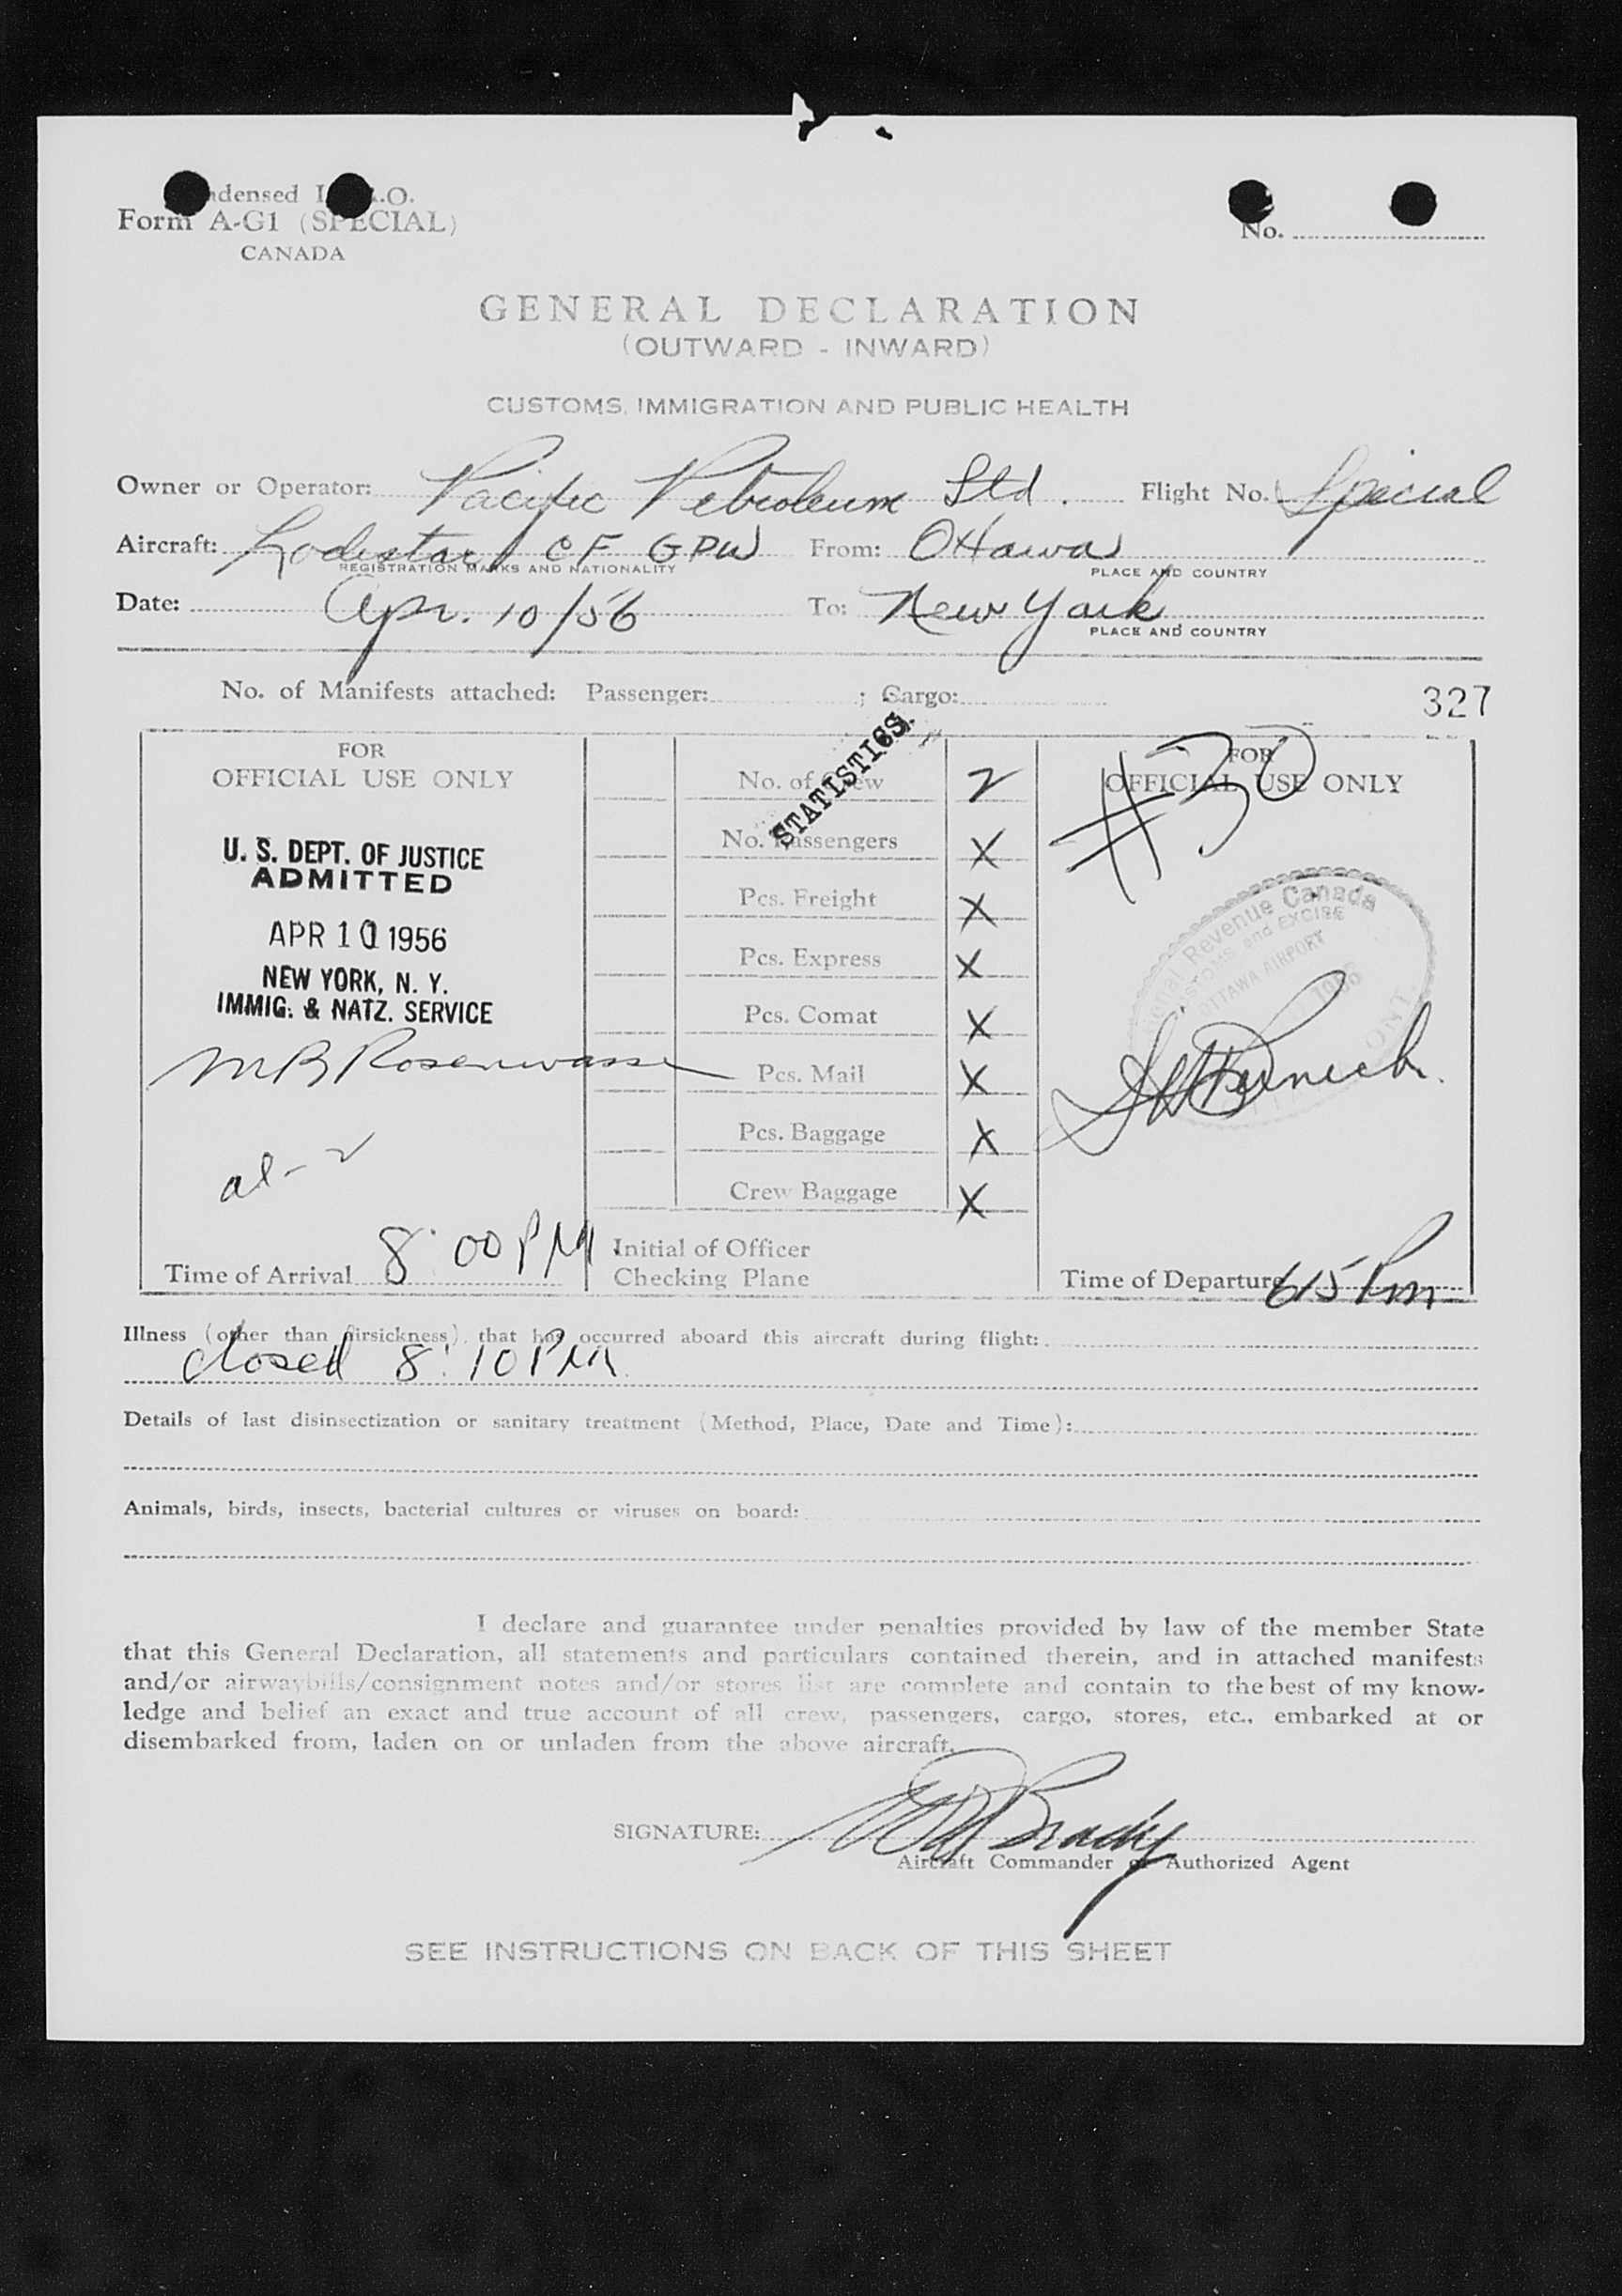 ndensed I .O.
Form A-G1 (SPECIAL)
CANADA
No.
GENERAL DECLARATION
(OUTWARD - INWARD)
CUSTOMS, IMMIGRATION AND PUBLIC HEALTH
Owner or Operator: Pacific Petroleum Ltd. Flight No. Special
Aircraft: Lodestar CF GPW From: Ottawa
REGISTRATION MARKS AND NATIONALITY PLACE AND COUNTRY
Date: Apr. 10/56 To: New York
PLACE AND COUNTRY
No. of Manifests attached: Passenger: ; Cargo:
327
STATISTICS
FOR
OFFICIAL USE ONLY
U. S. DEPT. OF JUSTICE
ADMITTED
APR 10 1956
NEW YORK, N. Y.
IMMIG. & NATZ. SERVICE
MB Rosenwasser
al-2
Time of Arrival 8:00 PM
No. of Crew 2
No. Passengers X
Pcs. Freight X
Pcs. Express X
Pcs. Comat X
Pcs. Mail X
Pcs. Baggage X
Crew Baggage X
Initial of Officer
Checking Plane
FOR
OFFICIAL USE ONLY
#30
National Revenue Canada
CUSTOMS and EXCISE
OTTAWA AIRPORT
1956
ONT.
Time of Departure 615 Pm
Illness (other than airsickness), that has occurred aboard this aircraft during flight:
closed 8:10 PM
Details of last disinsectization or sanitary treatment (Method, Place, Date and Time):
Animals, birds, insects, bacterial cultures or viruses on board:
I declare and guarantee under penalties provided by law of the member State
that this General Declaration, all statements and particulars contained therein, and in attached manifests
and/or airwaybills/consignment notes and/or stores list are complete and contain to the best of my know-
ledge and belief an exact and true account of all crew, passengers, cargo, stores, etc., embarked at or
disembarked from, laden on or unladen from the above aircraft.
SIGNATURE: Brady
Aircraft Commander or Authorized Agent
SEE INSTRUCTIONS ON BACK OF THIS SHEET